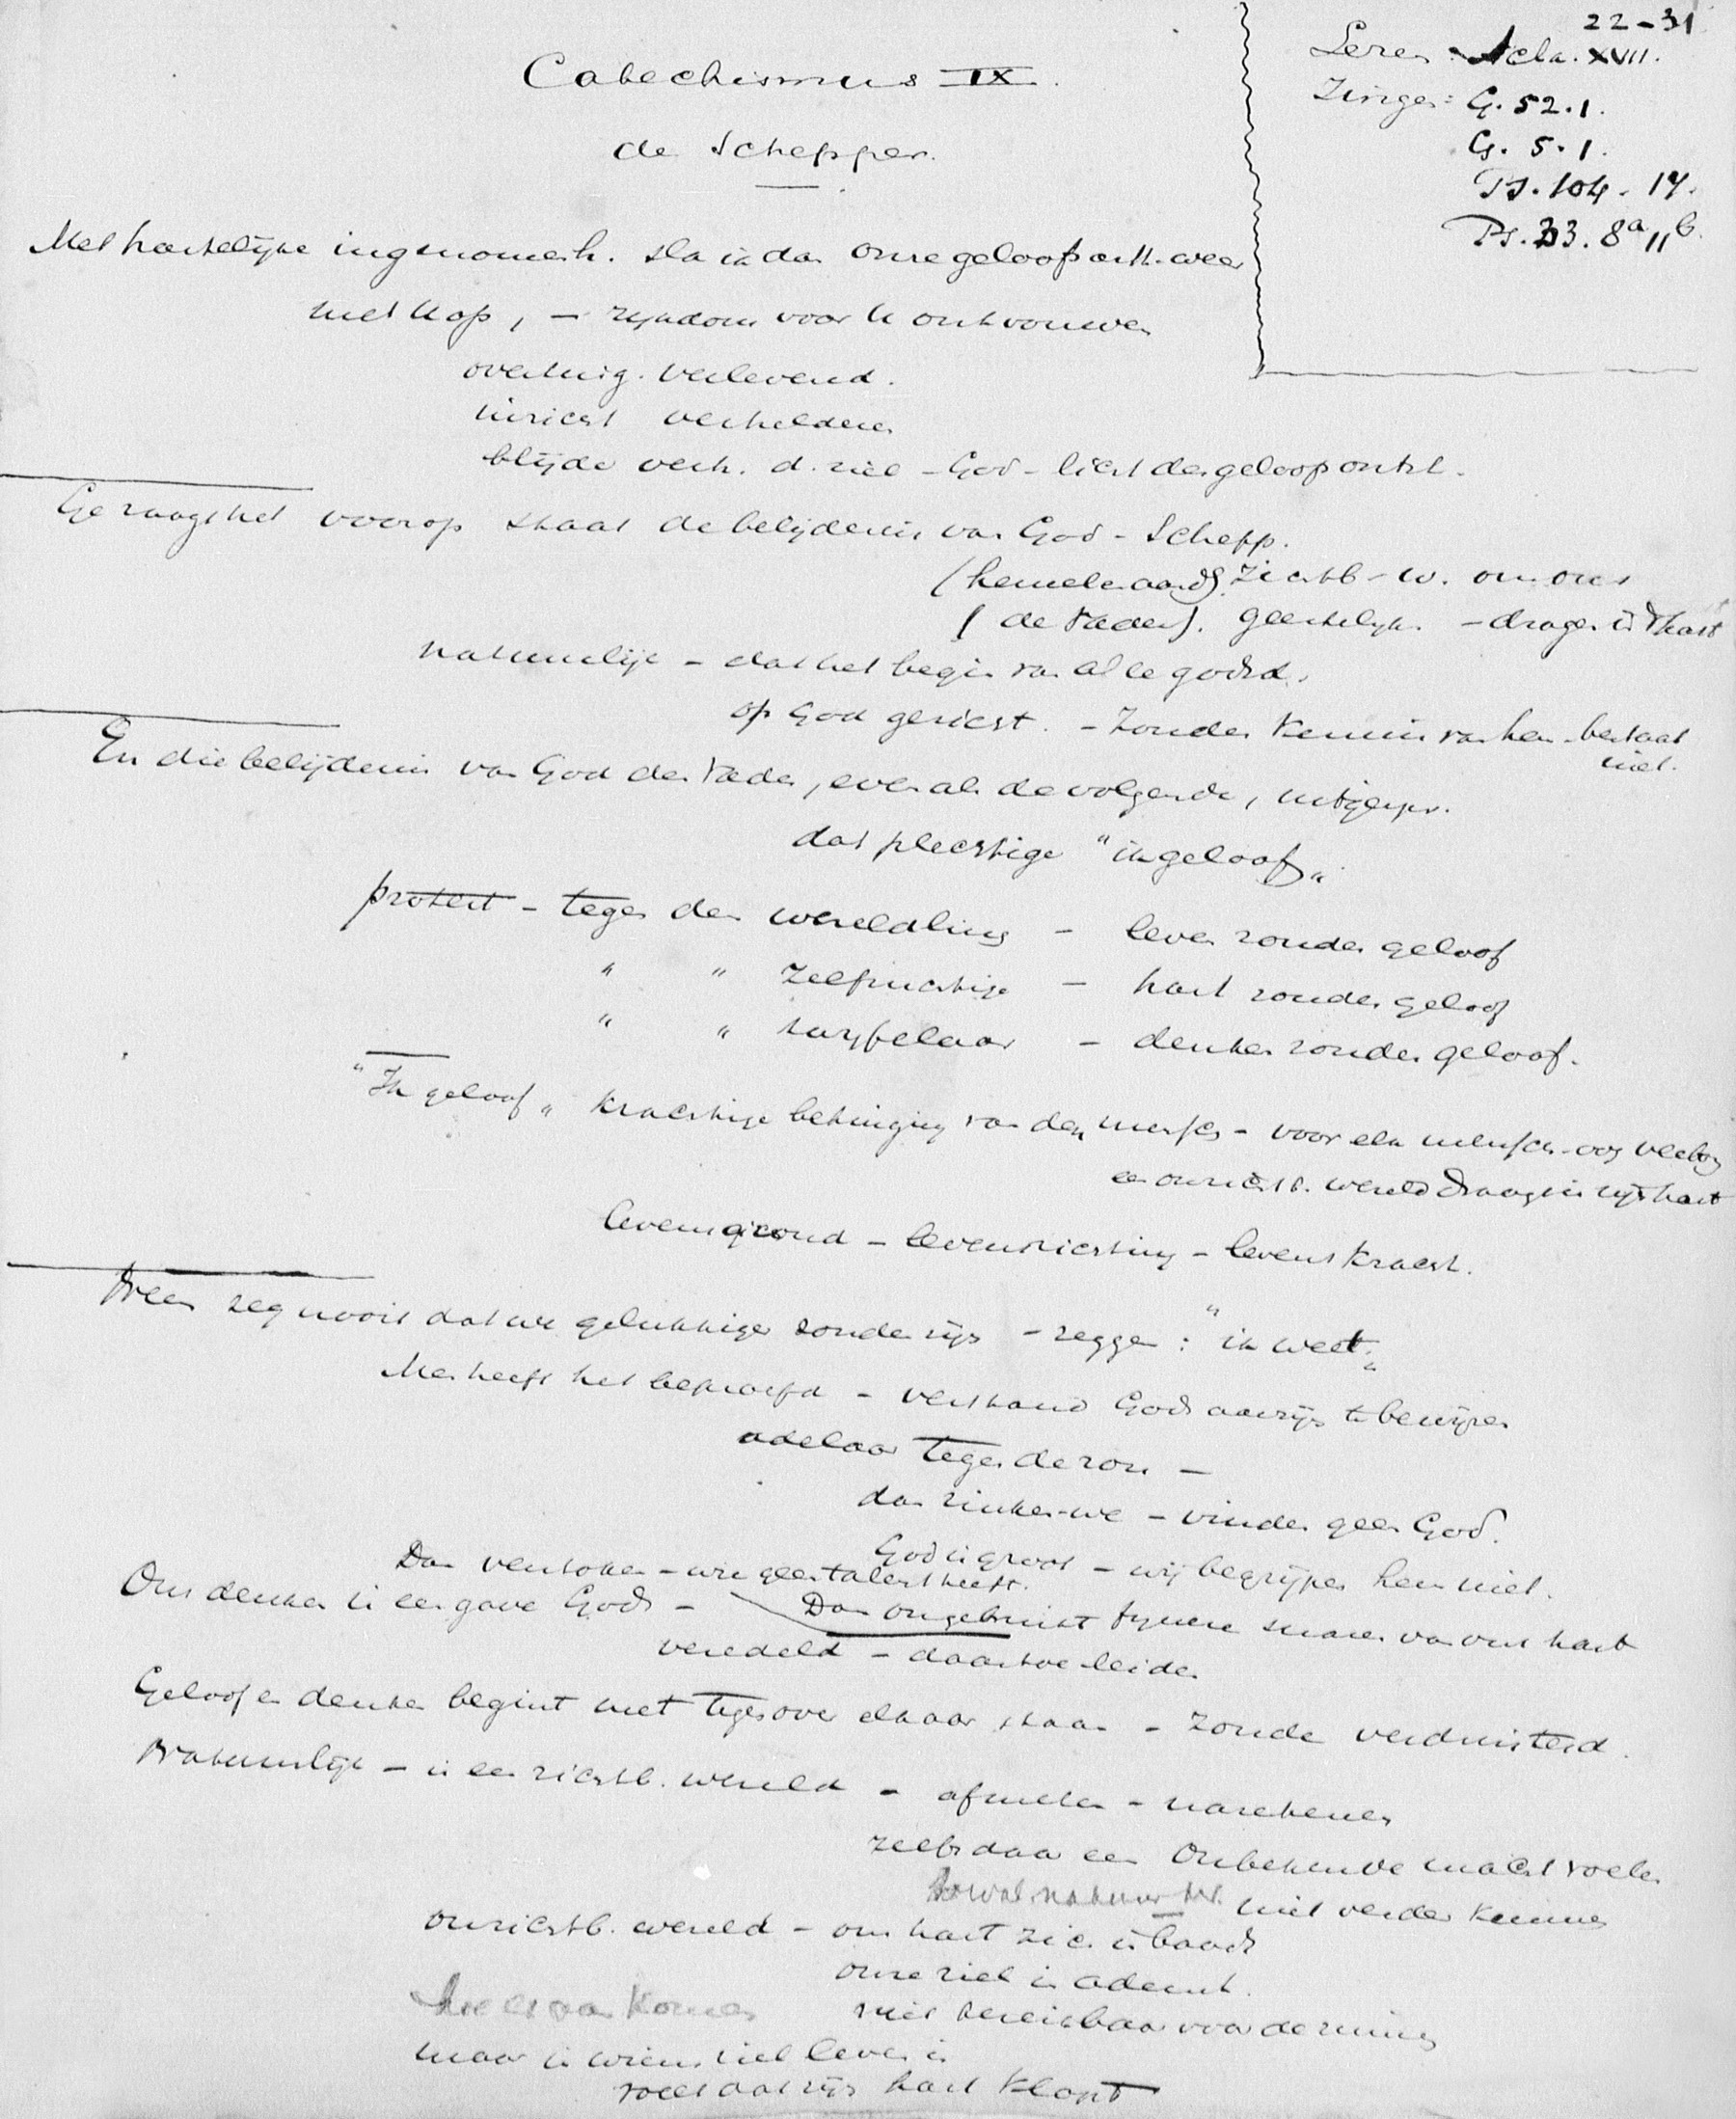 Catechismus IX.
de Schepper.
22-31
Lezen: Acta. XVII.
Zingen: G. 52.1.
G. 5.1.
Ps. 104. 17.
Ps. 33. 8a 11b.
Met hartelijke ingenomenh. sla ik dan onze geloofsart. weer
met U op, – rijkdom voor U ontvouwen
overtuig. verlevend.
inzicht verhelderen
blijde verh. d. ziel – God – licht der geloof ontst.
Ge vraagt het voorop staat de belijdenis van God – Schepp.
(hemel en aard). Zichtb – w. om ons
(de Vader). geestelijke – dragen in 't hart
natuurlijk – dat het begin van alle godsd.
op God gericht. – Zonder kennis van hem bestaat
niet.
En die belijdenis van God den Vader, even als de volgende, uitgespr.
dat plechtige "ik geloof"
protest – tegen den wereldling – leven zonder geloof
" " zelfzuchtige – hart zonder geloof
" " twijfelaar – denken zonder geloof.
"Ik geloof" krachtige betuiging van den mensch – voor elk menschen-oog verborg
een onzichtb. wereld draagt in zijn hart
levensgrond – levensrichting – levenskracht.
Neen zeg nooit dat we gelukkiger zonden zijn – zeggen: "ik weet"
Men heeft het beproefd – verstand Gods aanzijn te bewijzen
adelaar tegen de zon –
dan zinken we – vinden geen God.
God is groot – wij begrijpen hem niet.
Dan verstoken – wie geen talent heeft.
Ons denken is een gave Gods – Dan ongebruikt fijnere snaren van ons hart
veredeld – daartoe leiden
Geloof en denken begint met tegenover elkaar staan – Zonde verduisterd.
Natuurlijk – in een zichtb. wereld – afmeten – narekenen
zelfs daar een Onbekende macht voelen
niet verder kennen
onzichtb. wereld – ons hart zich in baadt
onze ziel in ademt.
niet bereikbaar voor de zinnen
maar in wiens ziel leven is
voelt dat zijn hart klopt